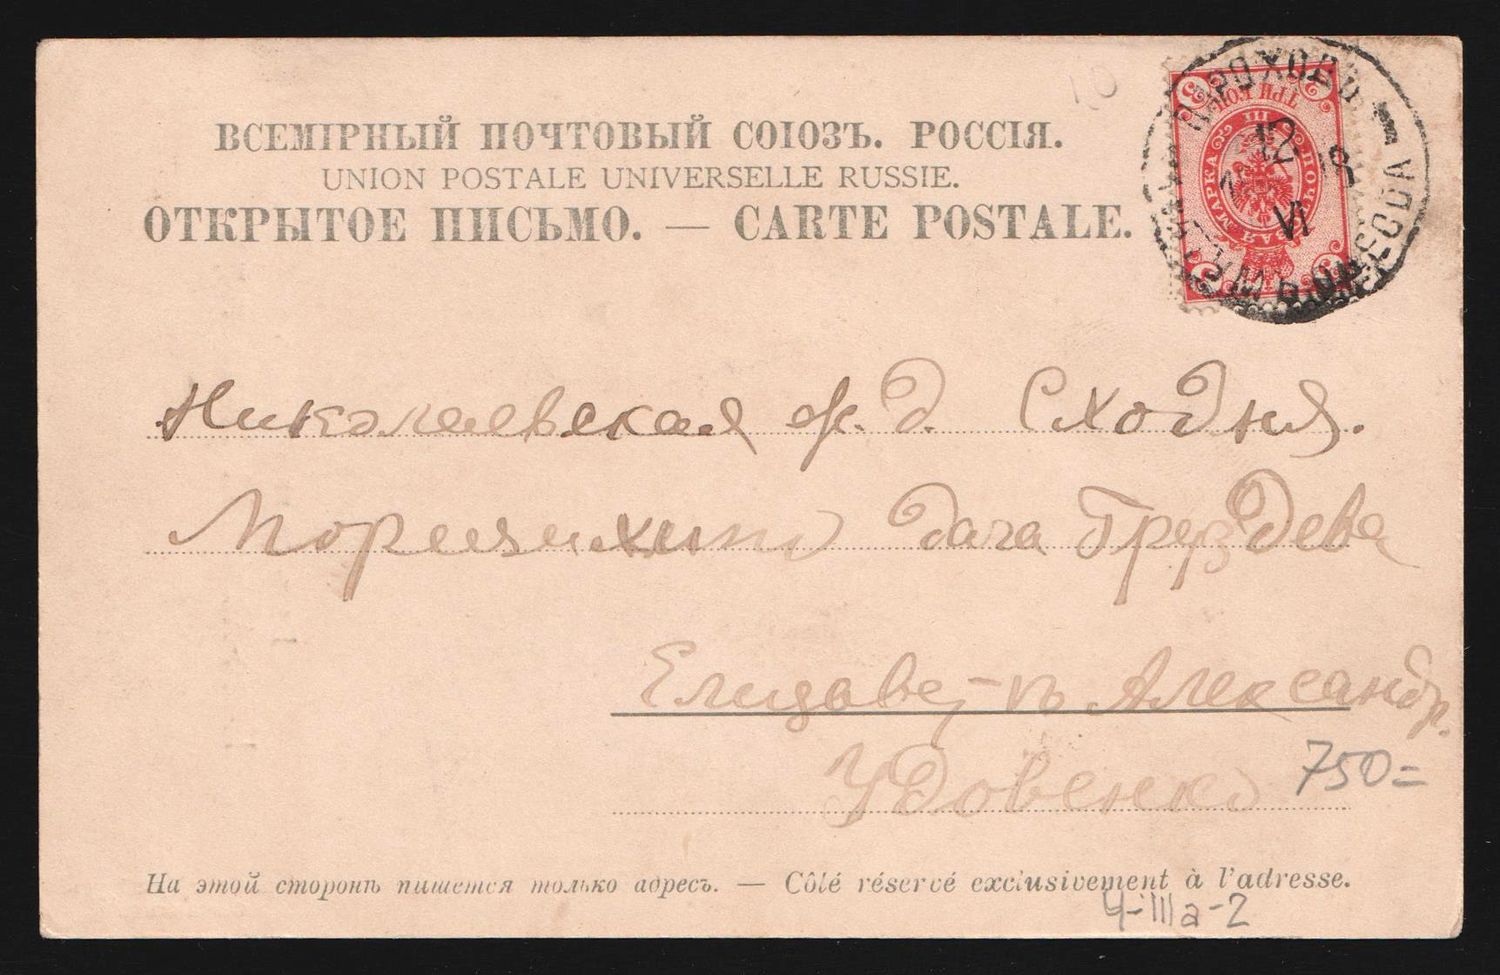 10
ВСЕМІРНЫЙ ПОЧТОВЫЙ СОЮЗЪ. РОССІЯ.
UNION POSTALE UNIVERSELLE RUSSIE.
ОТКРЫТОЕ ПИСЬМО. — CARTE POSTALE.
ТРИ КОП
3 3
III
ПОЧТОВАЯ МАРКА
3 3
ПАРОХОДЪ
ОДЕССА
12
VI
Николаевская ж. д. Сходня.
дача Груздева
Елизавет-ѣ Александр.
Удовенко
750=
На этой сторонѣ пишется только адресъ. — Côté réservé exclusivement à l'adresse.
Ч-IIIа-2